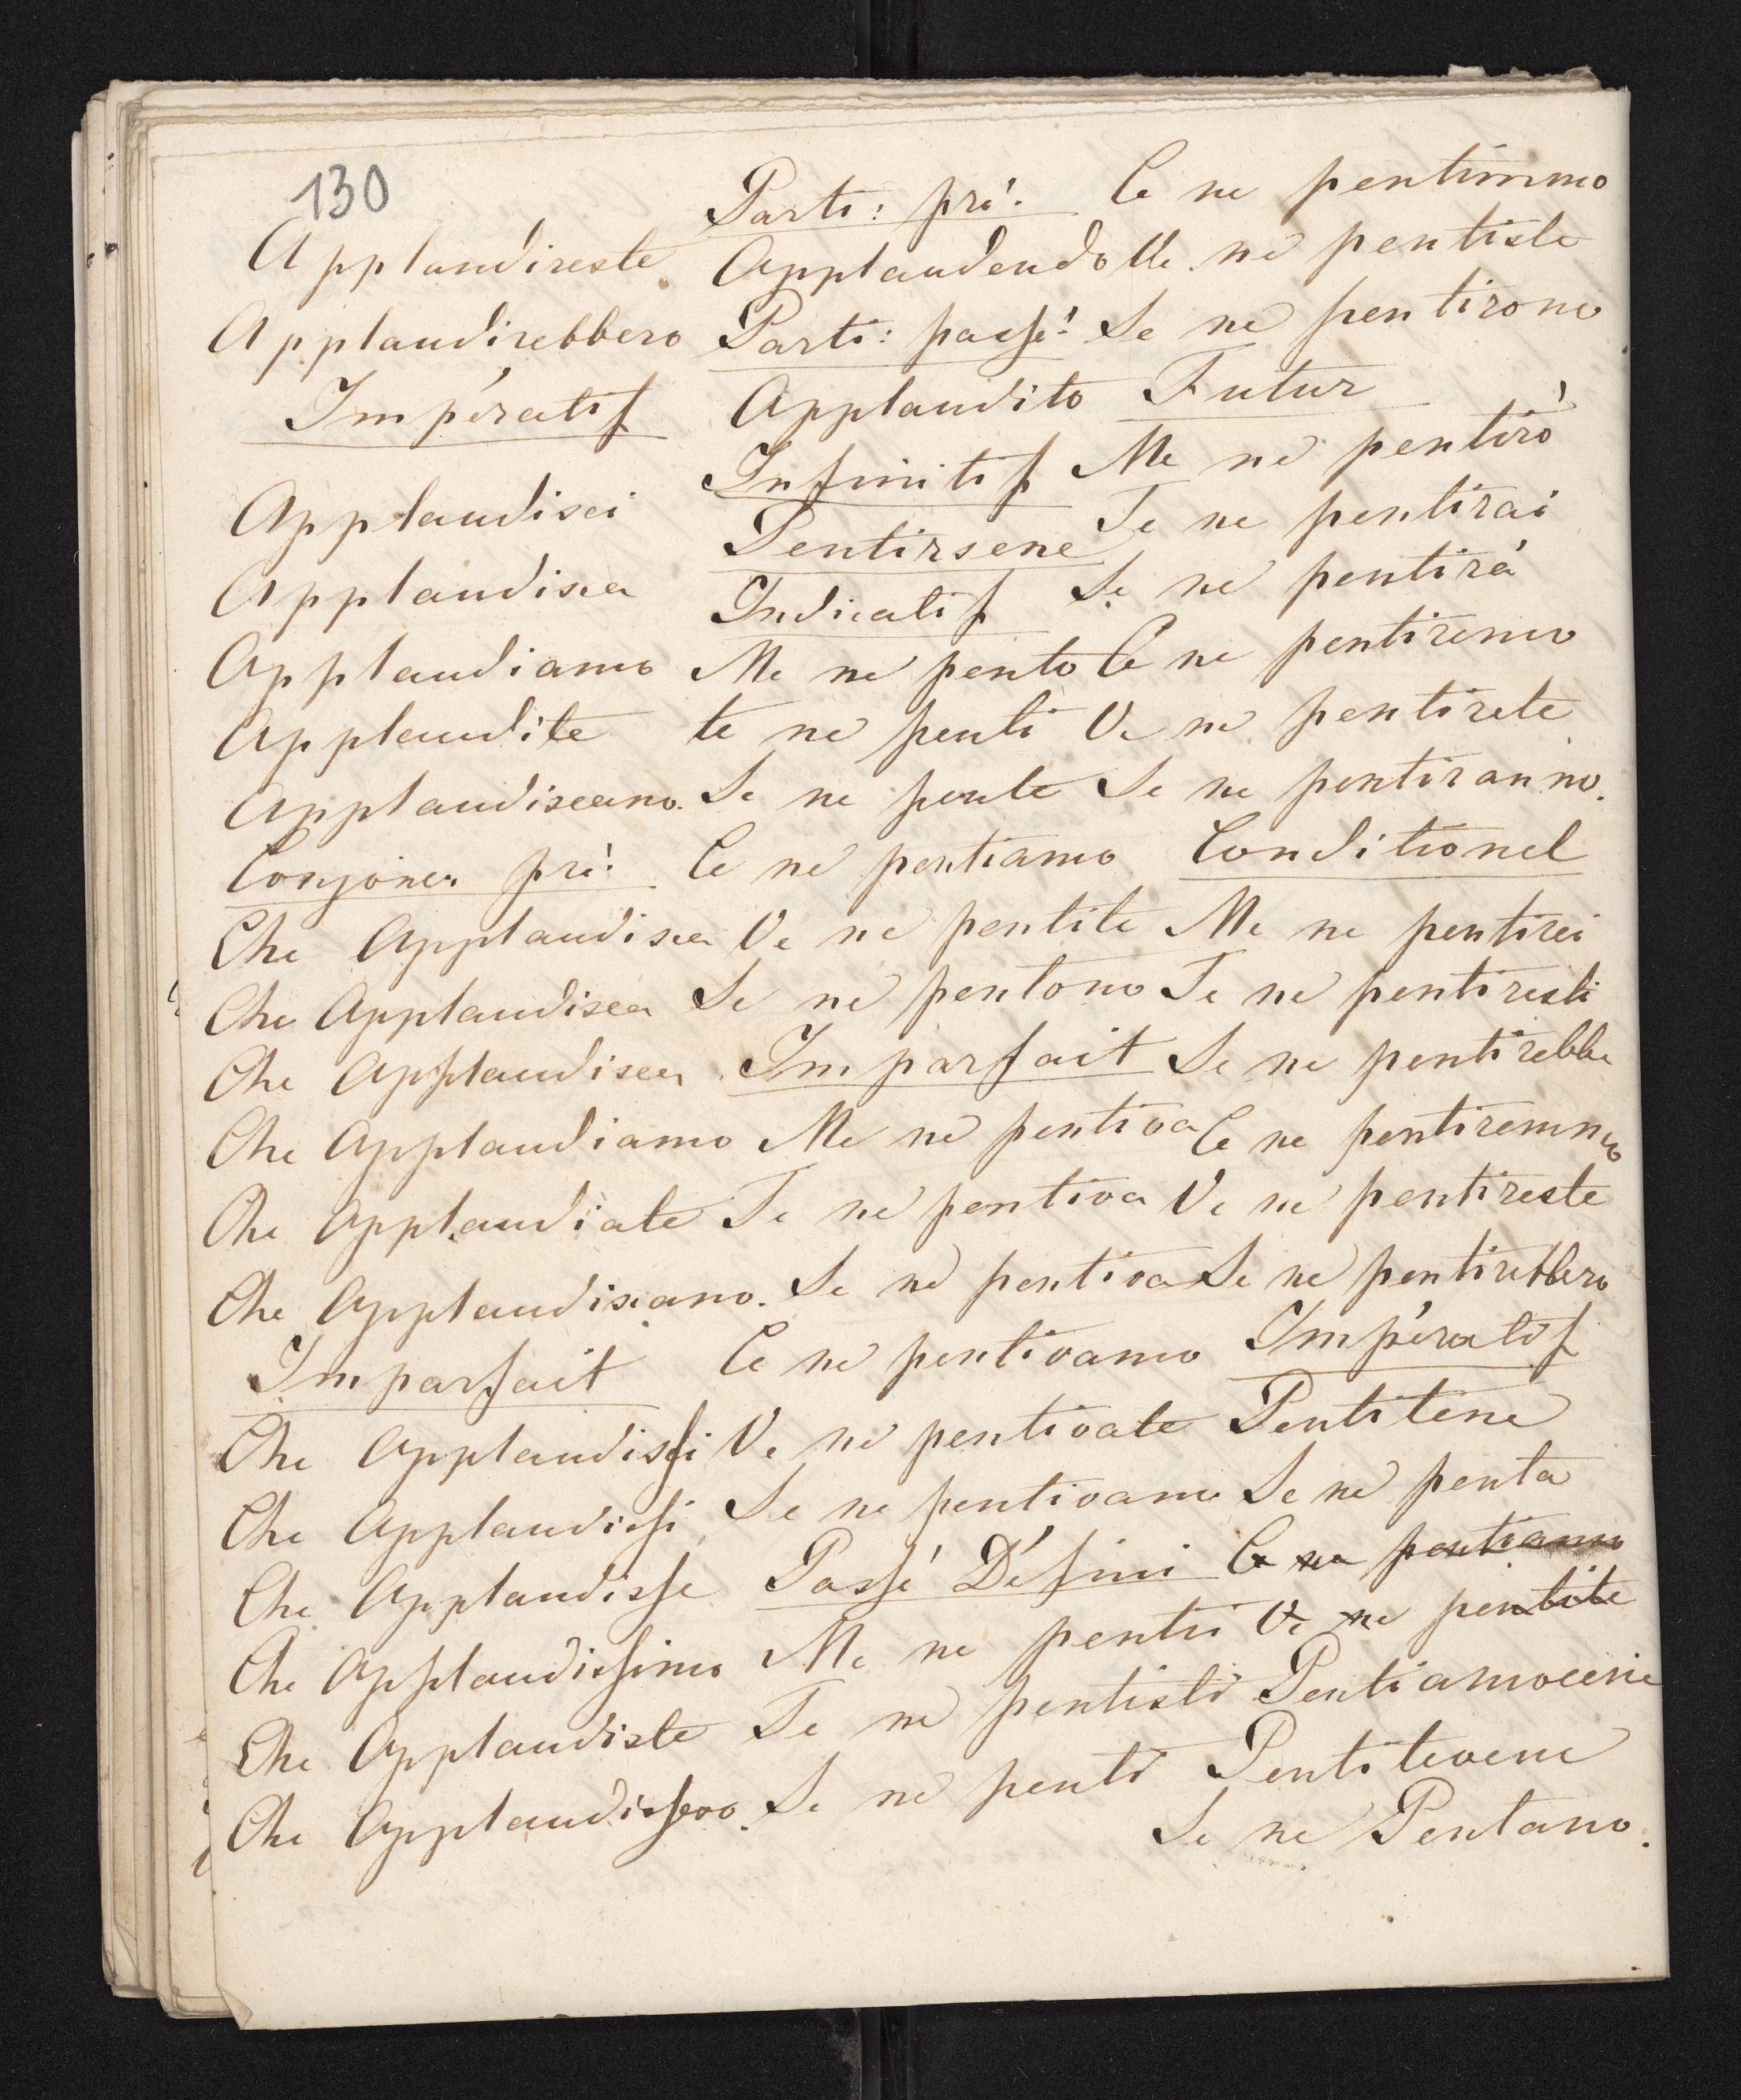 130
Applaudireste
Applaudirebbero
Impératif
Applaudisci
Applaudisca
Applaudiamo
Applaudite
Applaudiscano.
Conjonc. pré:
Che Applaudisca
Che Applaudisca
Che Applaudisca
Che Applaudiamo
Che Applaudiate
Che Applaudiscano.
Imparfait
Che Applaudissi
Che Applaudissi
Che Applaudisse
Che Applaudissimo
Che Applaudiste
Che Applaudissero.
Parti: pré:
Applaudendo
Parti: passé:
Applaudito
Infinitif
Pentirsene
Indicatif
Me ne pento
te ne penti
Se ne pente
Ce ne pentiamo
Ve ne pentite
Se ne pentono
Imparfait
Me ne pentiva
Te ne pentiva
Se ne pentiva
Ce ne pentivamo
Ve ne pentivate
Se ne pentivano
Passé Défini
Me ne pentii
Te ne pentisti
Se ne penti
Ce ne pentimmo
Ve ne pentiste
Se ne pentirono
Futur
Me ne pentirò
Te ne pentirai
Se ne pentirà
Ce ne pentiremo
Ve ne pentirete
Se ne pentiranno.
Conditionel
Me ne pentirei
Te ne pentiresti
Se ne pentirebbe
Ce ne pentiremmo
Ve ne pentireste
Se ne pentirebbero
Impératif
Pentitene
Se ne penta
Ce ne pentiamo
Ve ne pentite
Pentiamocene
Pentitevene
Se ne Pentano.